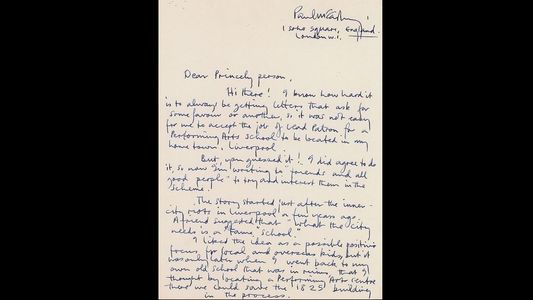 Paul McCartney
1 Soho Square, England.
London W.1.
Dear Princely person,
Hi there! I know how hard it
is to always be getting letters that ask for
some favour or another, so it was not easy
for me to accept the job of Lead Patron for a
Performing Arts School to be located in my
home town, Liverpool.
But, you guessed it! I did agree to do
it, so now I'm writing to "friends and all
good people" to try and interest them in the
scheme.
The story started just after the inner-
city riots in Liverpool a few years ago.
A friend suggested that "What the city
needs is a 'Fame' school."
I liked the idea as a possible positive
focus for local and overseas kids, but it
was only later when I went back to my
own old school that was in ruins, that I
thought by locating a Performing Arts centre
there we could save the 1825 building
in the process.